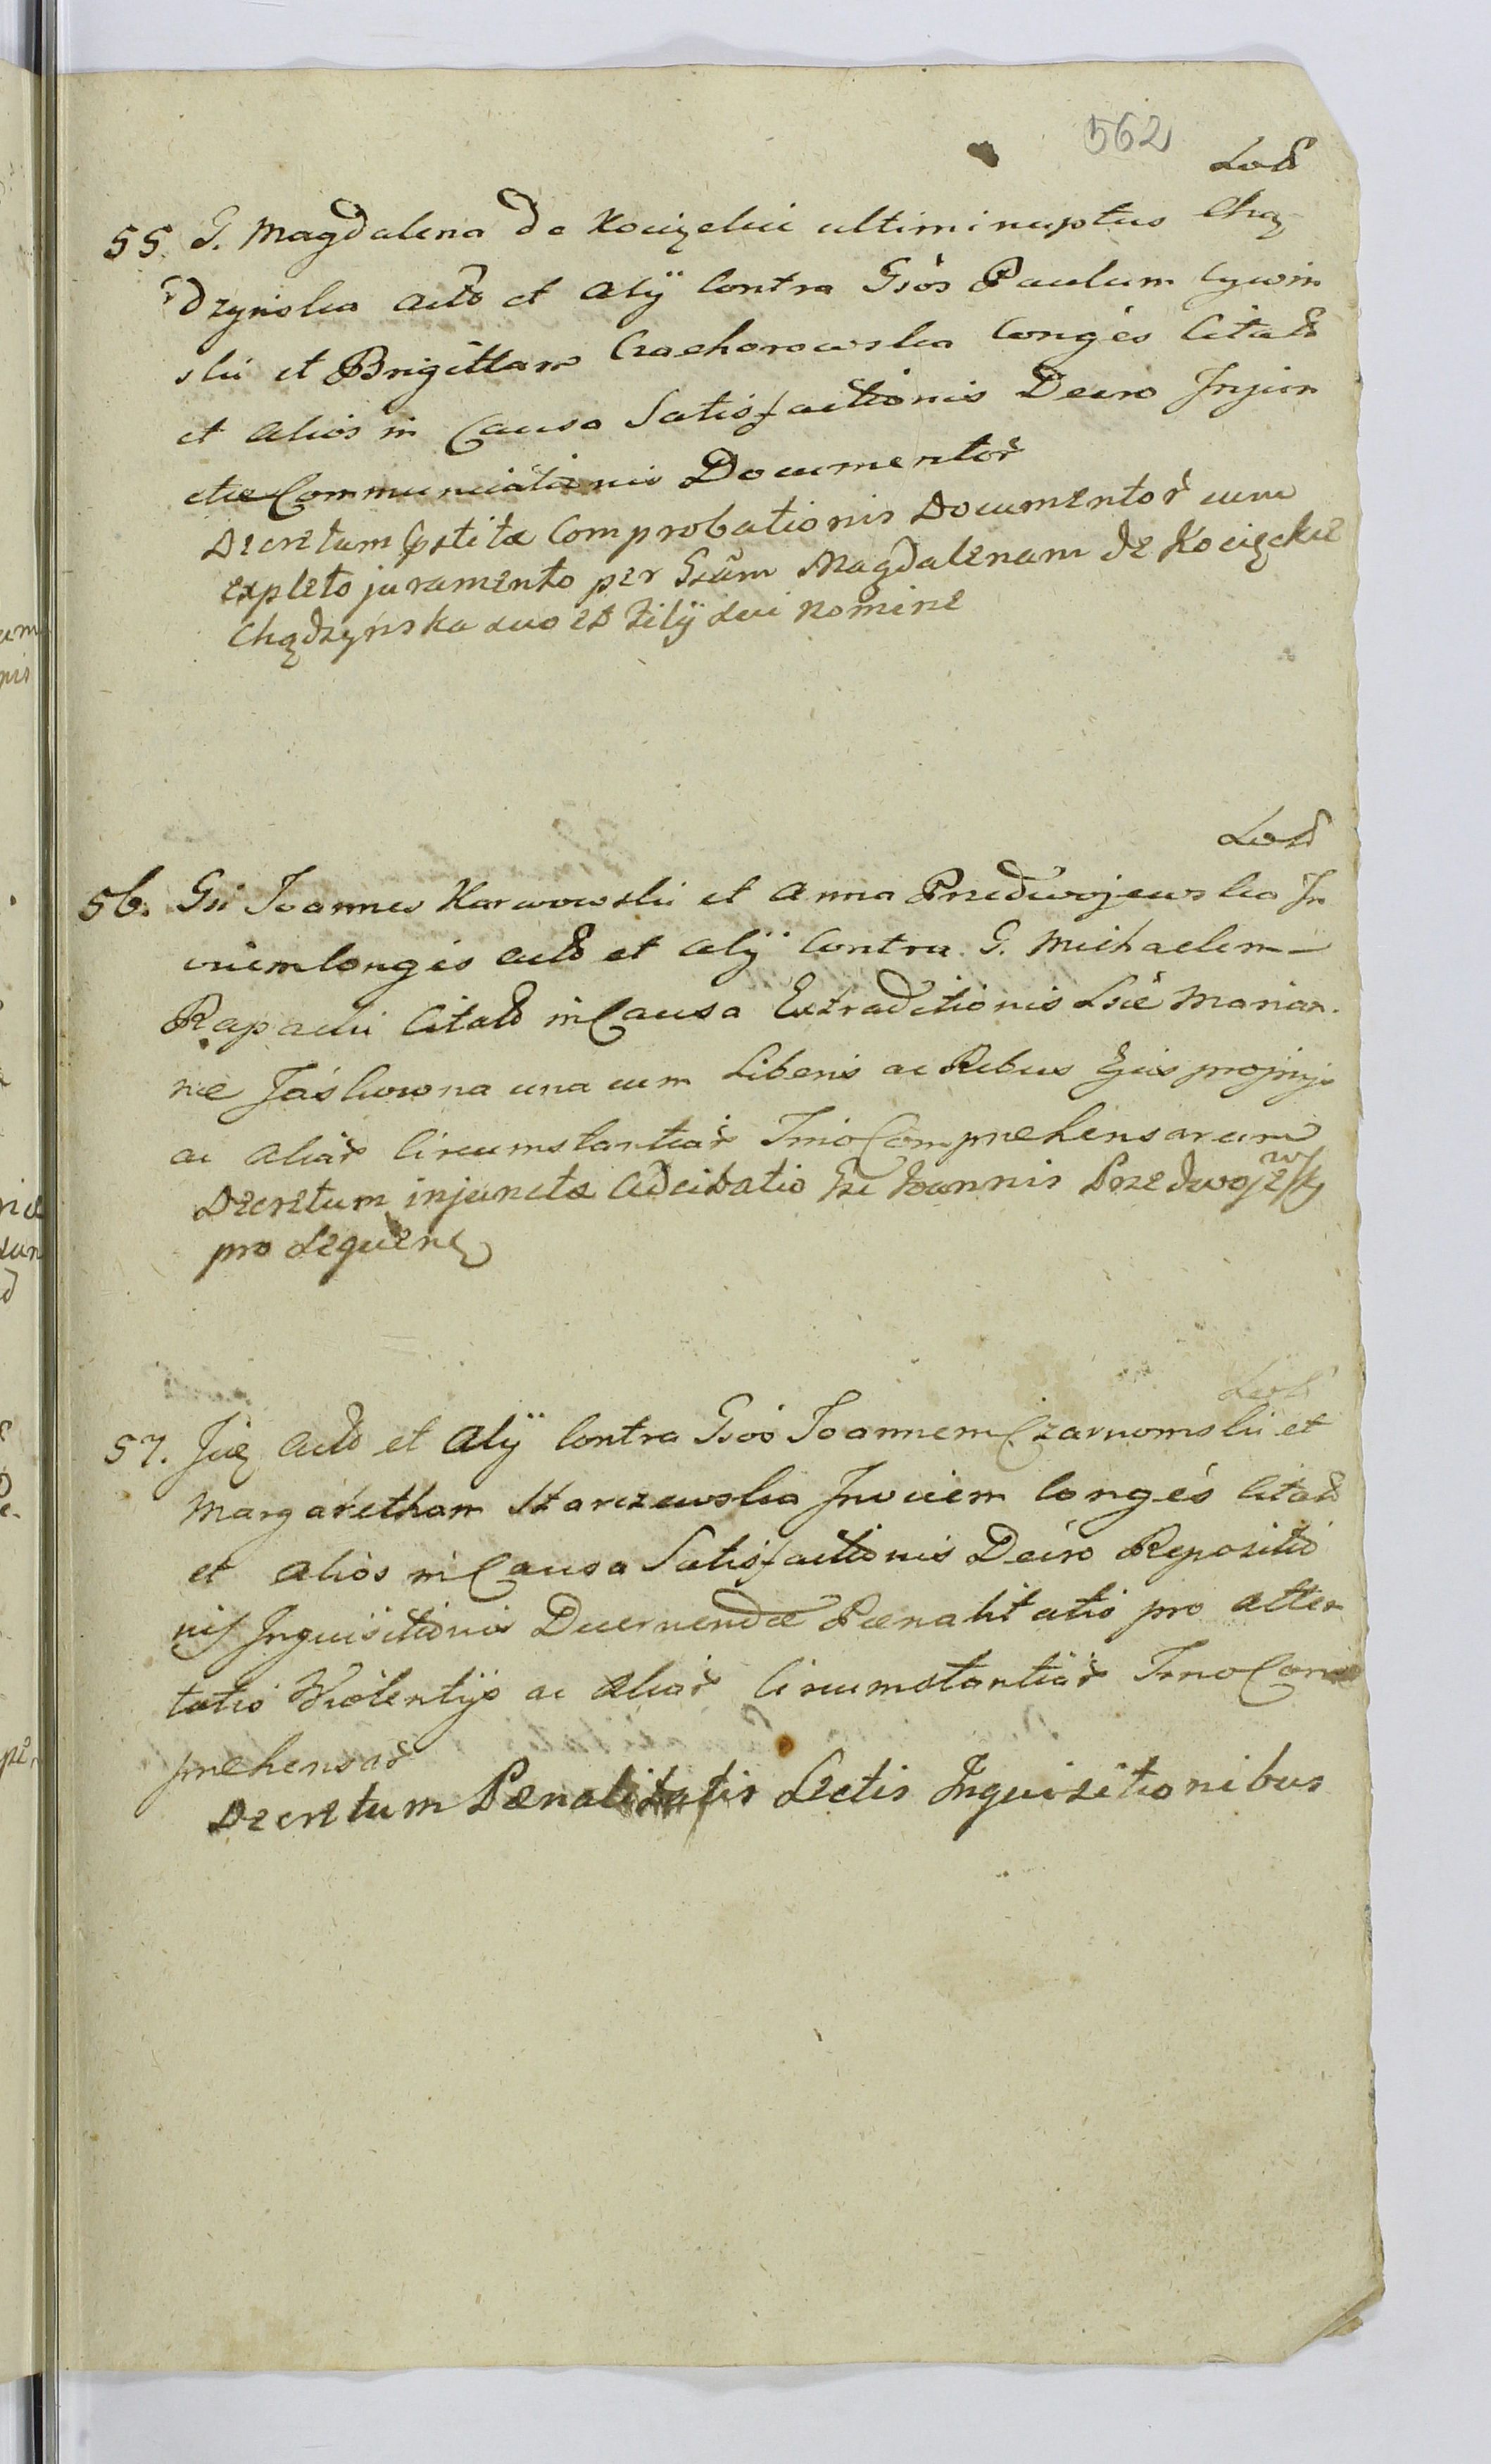 562
Lod
55. G. Magdalena de Kociełlii ultimi nuptus Chą
dzynska act et alÿ Contra Gsos Paulum Cywin
ski et Brigittam Czachorowska Conges Citat
et alios in Causa Satisfactionis Decro Injun
ctae Communicationis Documentor
Decretum Comprobationis Documentor cum
expleto juramento per Gsam Magdalenam de Kocięckie
Chądzyńska suo et filÿ sui nomine
Lod
56. Gsi Joannes Karwowski et Anna Przedwojewska In
vicem Conges act et alÿ Contra G. Michaelem
Rapacki Citat in Causa Extraditionis Lsae Marian
nae Jaskowna una cum Liberis ac Rebus Ejus propÿs
ac aliar Circumstantiar Trmo Comprehensarum
Decretum injuncta Adcitatio Gsi Joannis Przedwojewski
pro sequen
Lod
57. Jię act et alÿ Contra Gsos Joannem Czarnomski et
Margaretham Starczewska Invicem Conges Citat
et alios in Causa Satisfactionis Decro Repositio
nis Inquisitionis Decernendae Paenalitatis pro atten
tatis Violentÿs ac aliar Circumstantiar Trmo Com
prehensar
Decretum Paenalitatis Lectis Inquisitionibus